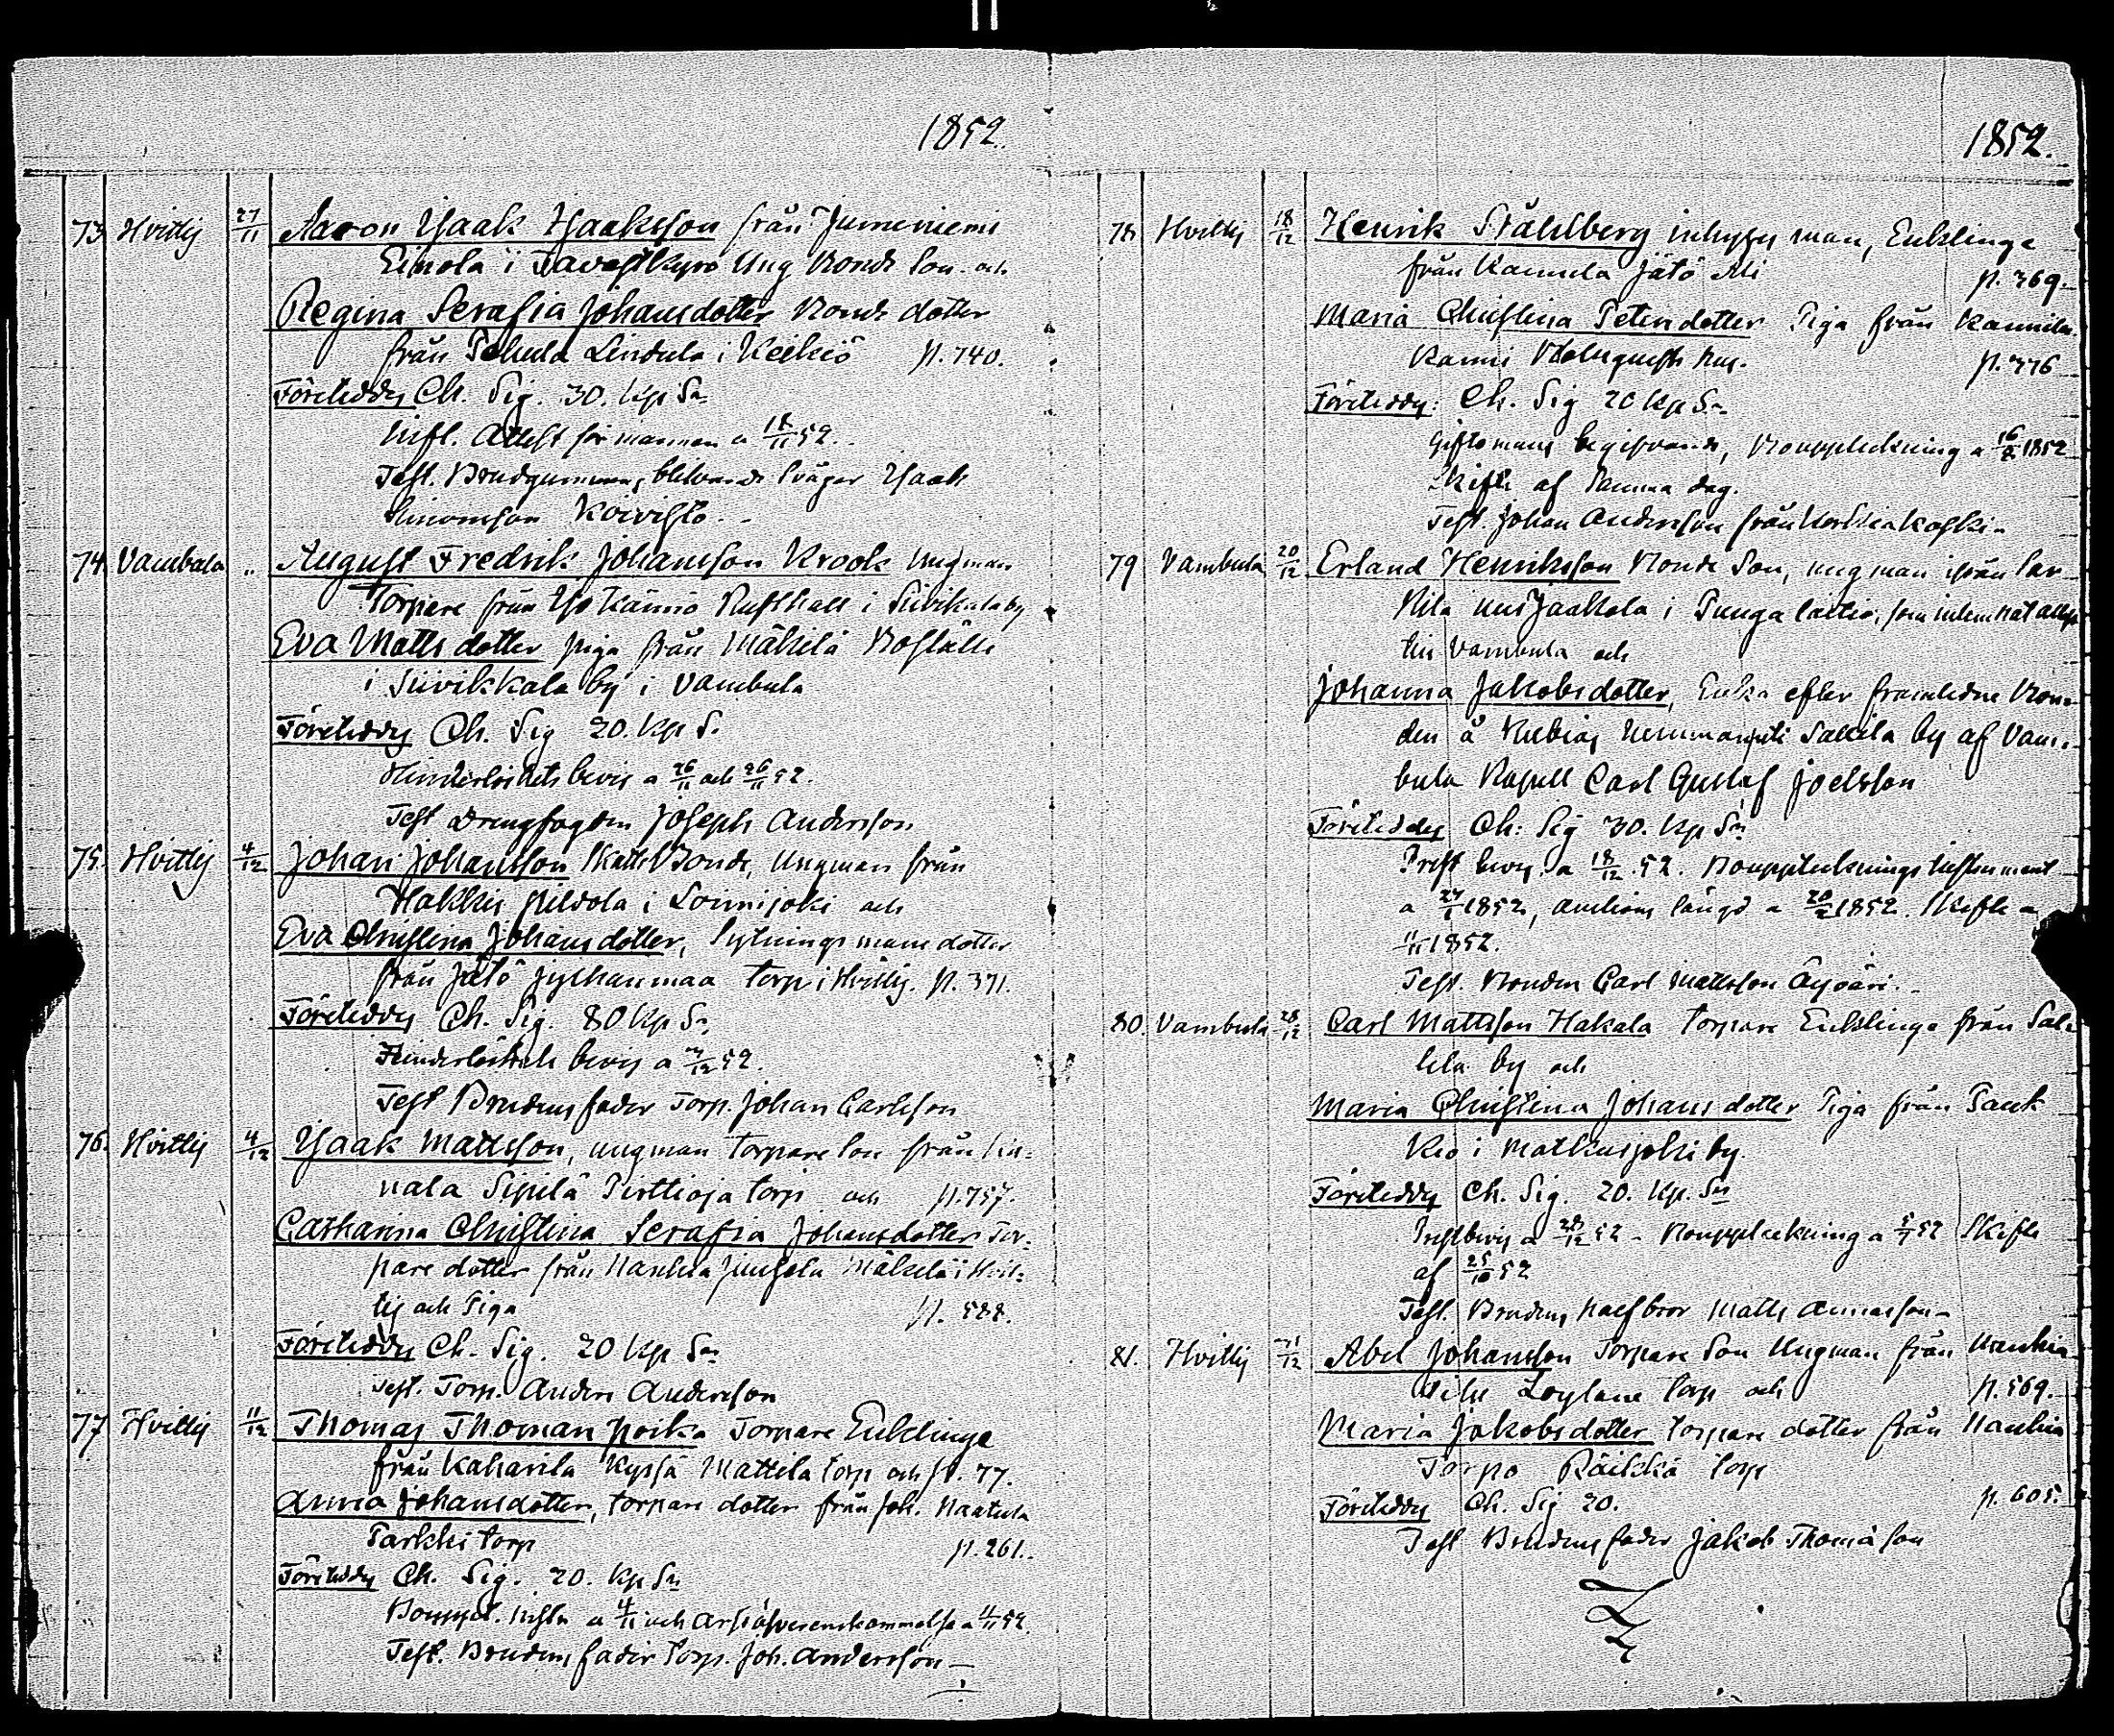 1852.
73. Hvittis 27/11 Aaron Isaak Isaaksson från Jumeniemi
Einola i Tavastkyro Ung Bonde Son och
Regina Serafia Johansdotter Bonde dotter
från Lindula i Keikiö p. 740.
Företeddes Ch. Sig. 30. Kp Sr
Attest för mannen a 18/11 52.
Test. Brudgummens blifvande Svåger Isaak
Simonsson Koivisto.
74. Vambula " August Fredrik Johansson Krook Ungman
Torpare från Kännö Rusthåll i Siivikkala by
Eva Matts dotter piga från Mäkilä Boställe
i Siivikkala by i Vambula
Företeddes Ch. Sig 20. Kp S.
Hinderlöshets bevis a 26/11 och 26/11 52.
Test Drengfogden Joseph Andersson
75. Hvittis 4/12 Johan Johansson Skatte Bonde, Ungman från
Hakkis i Loimijoki och
Eva Christina Johansdotter, Sytnings mans dotter
från Jätö Jylhanmaa torp i Hvittis. p. 371.
Företeddes Ch. Sig. 80 Kp Sr
Hinderlöshets bevis a 3/12 52.
Test Brudens fader Torp. Johan Carlsson
76. Hvittis 4/12 Isaak Mattsson, ungman Torpare Son från
nala Sipilä Perttioja torp och p. 757.
Catharina Christina Serafia Johansdotter Tor-
pare dotter från Hankia Junsola Mäkelä i Hvit-
tis och Piga p. 588.
Företeddes Ch. Sig. 20 Kp Sr
Test. Torp. Anders Andersson
77 Hvittis 11/12 Thomas Thoman poika Torpare Enklinge
från Kaharila Kyssä Mattila torp och p. 77.
Anna Johansdotter, torpare dotter från Joh. Naatula
Parkki torp p. 261.
Företeddes Ch. Sig. 20. Kp Sr
a 4/11 och arfsöfverenskommelse a 4/11 52.
Test. Brudens fader Torp. Joh. Andersson
1852.
78 Hvittis 18/12 Henrik Ståhlberg inhyses man, Enklinge
från Kannila Jätö Ali p. 369.
Maria Christina Petersdotter Piga från Kannila
Kanni Holmquists hus. p. 376
Företeddes: Ch. Sig 20 Kp Sr
Giftomans begifvande, Bouppteckning a 16/2 1852
Skifte af Samma dag.
Test. Johan Andersson från
79 Vambula 20/12 Erland Henriksson Bonde Son, ungman ifrån Sar
kila uusi Jaakkola i Punga laitio, som inlemnat attest
till Vambula och
Johanna Jakobsdotter, Enka efter framledne Bon-
den å Kubias Sallila by af Vam-
bula Kapell Carl Gustaf Joelsson
Företeddes Ch: Sig 30. Kp Sr
Prest bevis a 18/12 52. Bouppteckningsinstrument
a 24/1 1852, auctions längd a 20/2 1852. Skifte a
11/11 1852.
Test. Bonden Carl Mattsson Äijääri.
80. Vambula 28/12 Carl Mattsson Hakala torpare Enklinge från Sal-
lila by och
Maria Christina Johans dotter Piga från Pank
kio i Matkusjoki by
Företeddes Ch. Sig. 20. Kp. Sr
Prestbevis a 28/12 52 - Bouppteckning a 5/7 52 Skifte
af 25/10 52
Test. Brudens half bror Matts Annasson
81. Hvittis 31/12 Abel Johansson Torpare Son Ungman från Hankia
torp och p. 569.
Maria Jakobsdotter torpare dotter från Hankia
Torpo Räikkä torp
Företeddes Ch. Sig 20. p. 605.
Test Brudens fader Jakob Thomasson